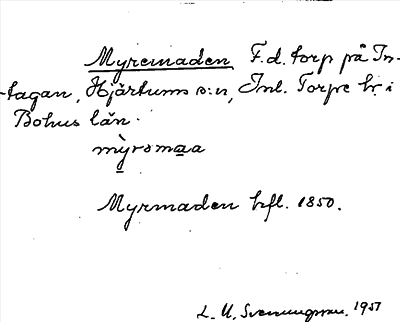 Myremaden F.d. torp på In-
-tagan, Hjärtums s:n, Inl. Torpe hd i
Bohus län.
mỳromaa
Myrmaden hfl. 1850.
L. U. Svenungsson. 1951